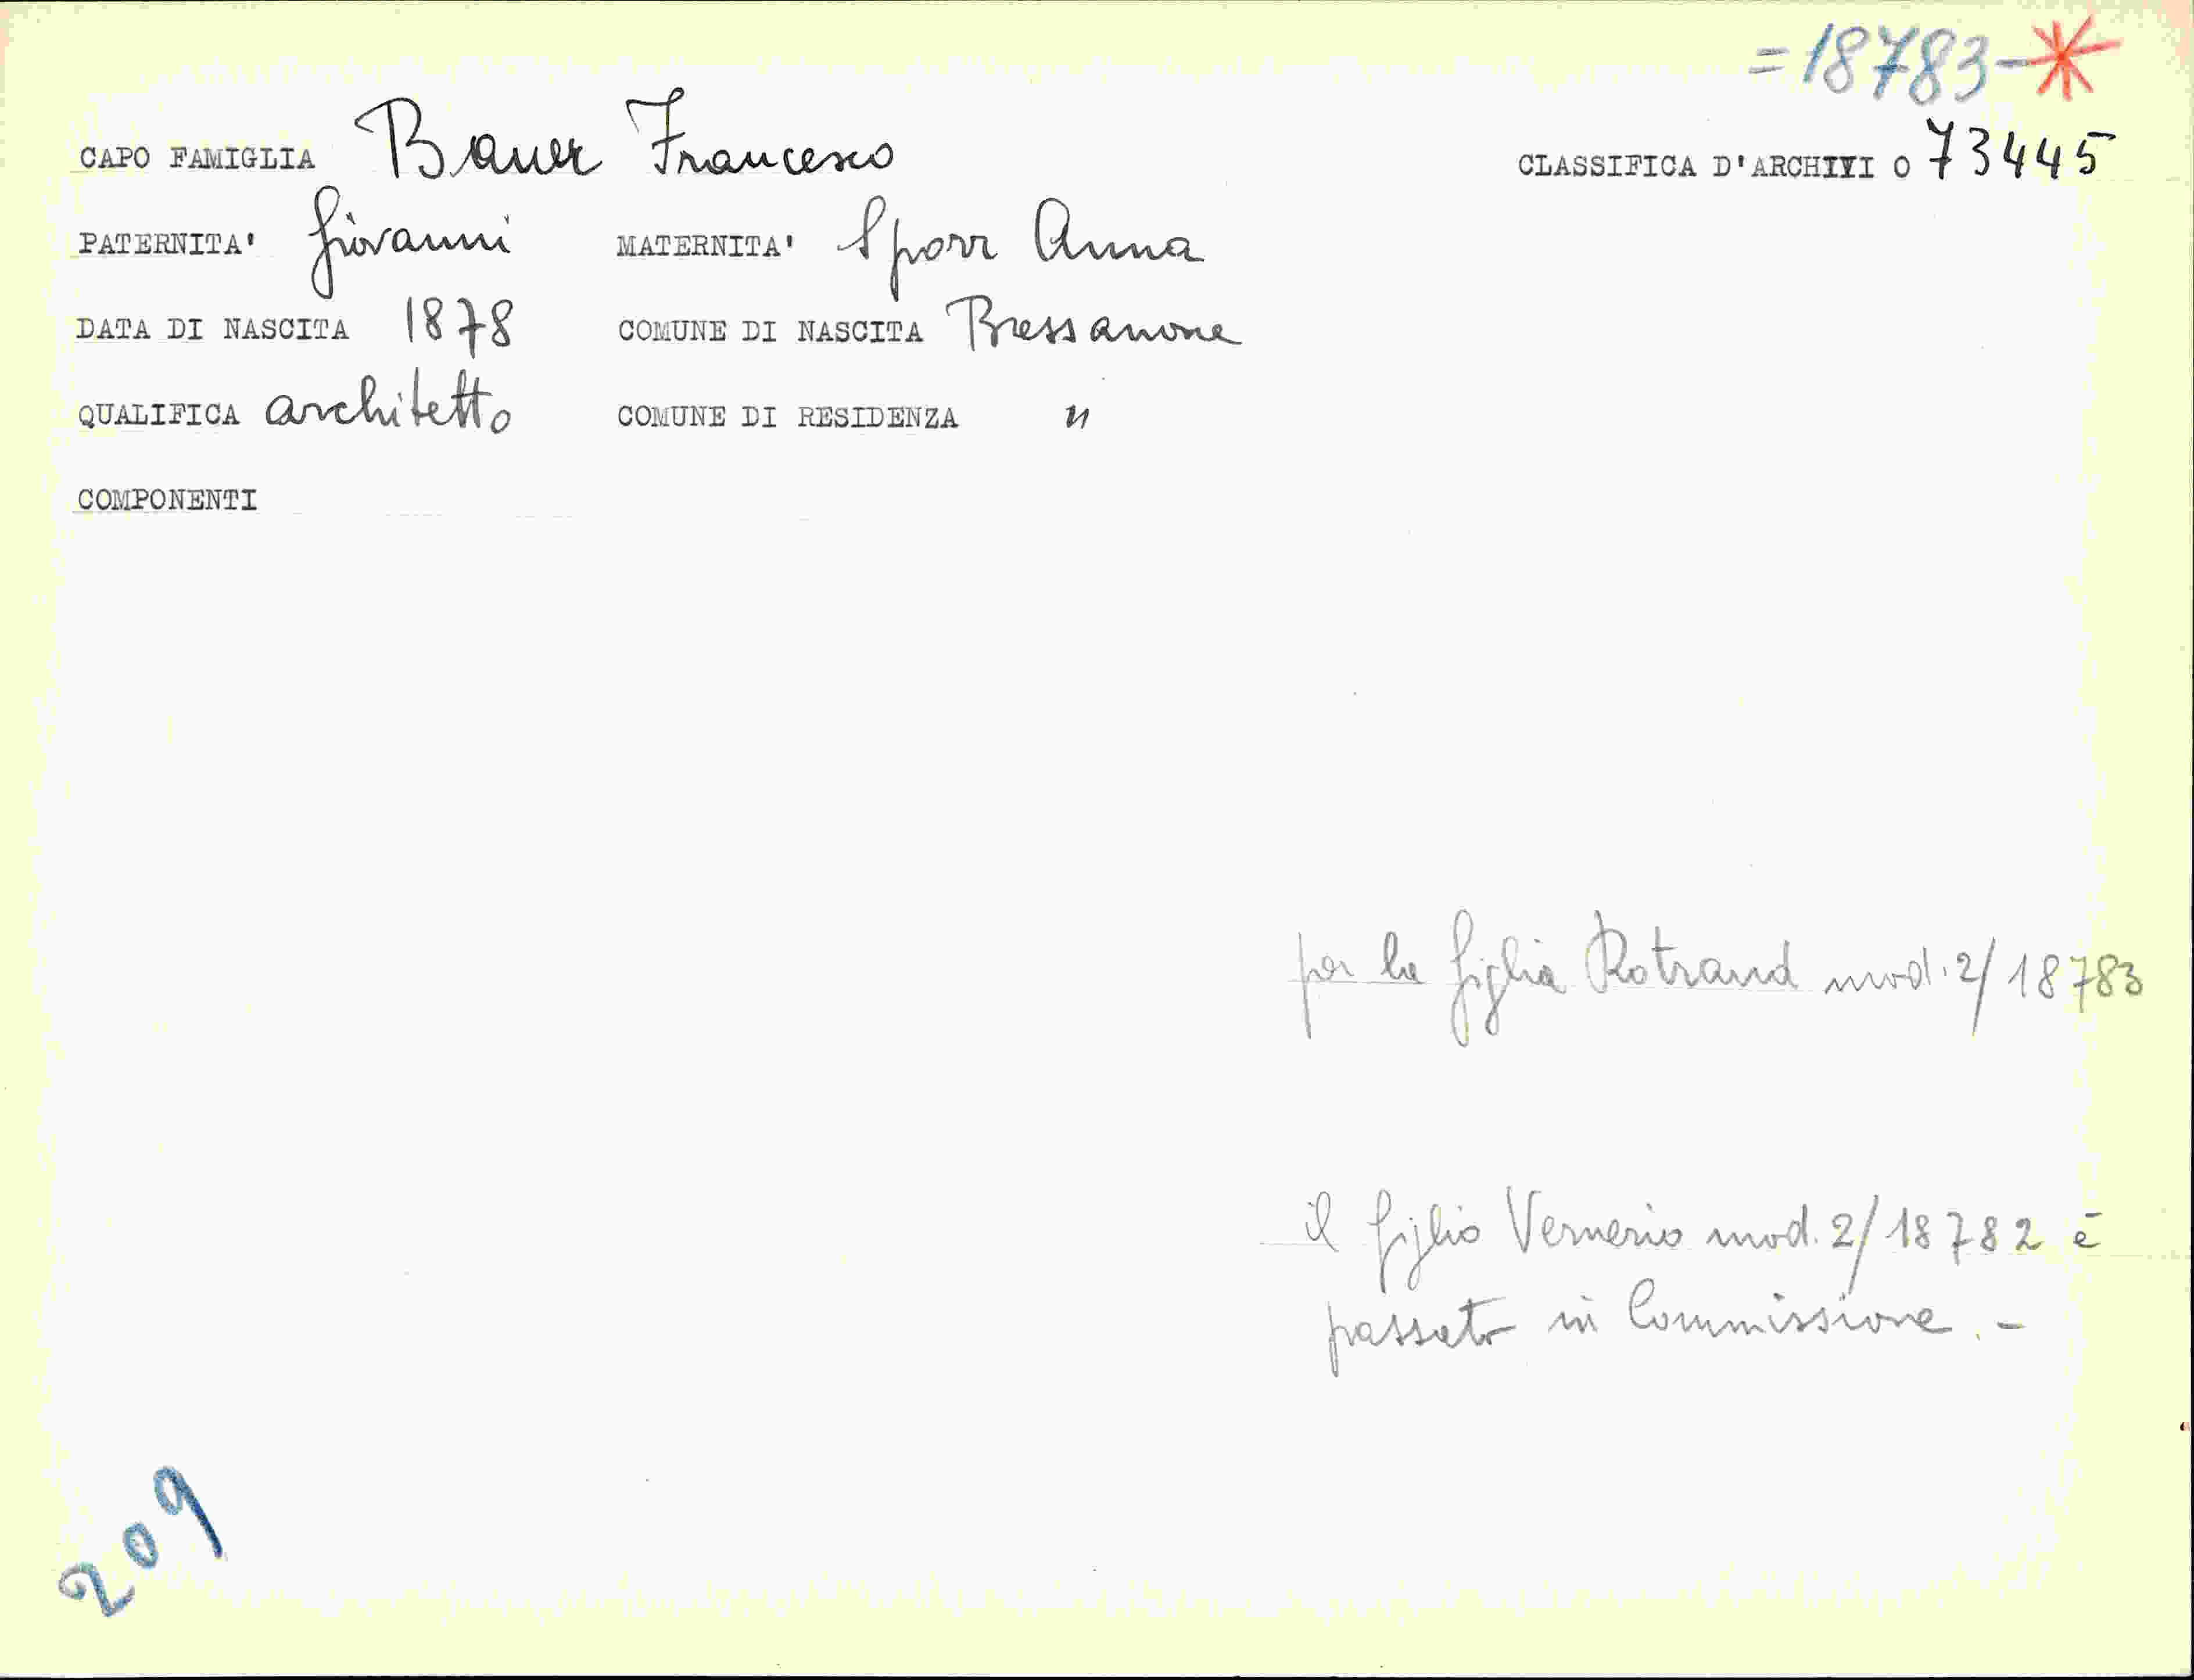 =18783-*
CAPO FAMIGLIA Bauer Francesco CLASSIFICA D'ARCHIVI O 73445
PATERNITA' Giovanni MATERNITA' Sporr Anna
DATA DI NASCITA 1878 COMUNE DI NASCITA Bressanone
QUALIFICA architetto COMUNE DI RESIDENZA "
COMPONENTI
per la figlia Rotraud mod. 2/18783
il figlio Vernerio mod. 2/18782 è
passato in Commissione.-
209